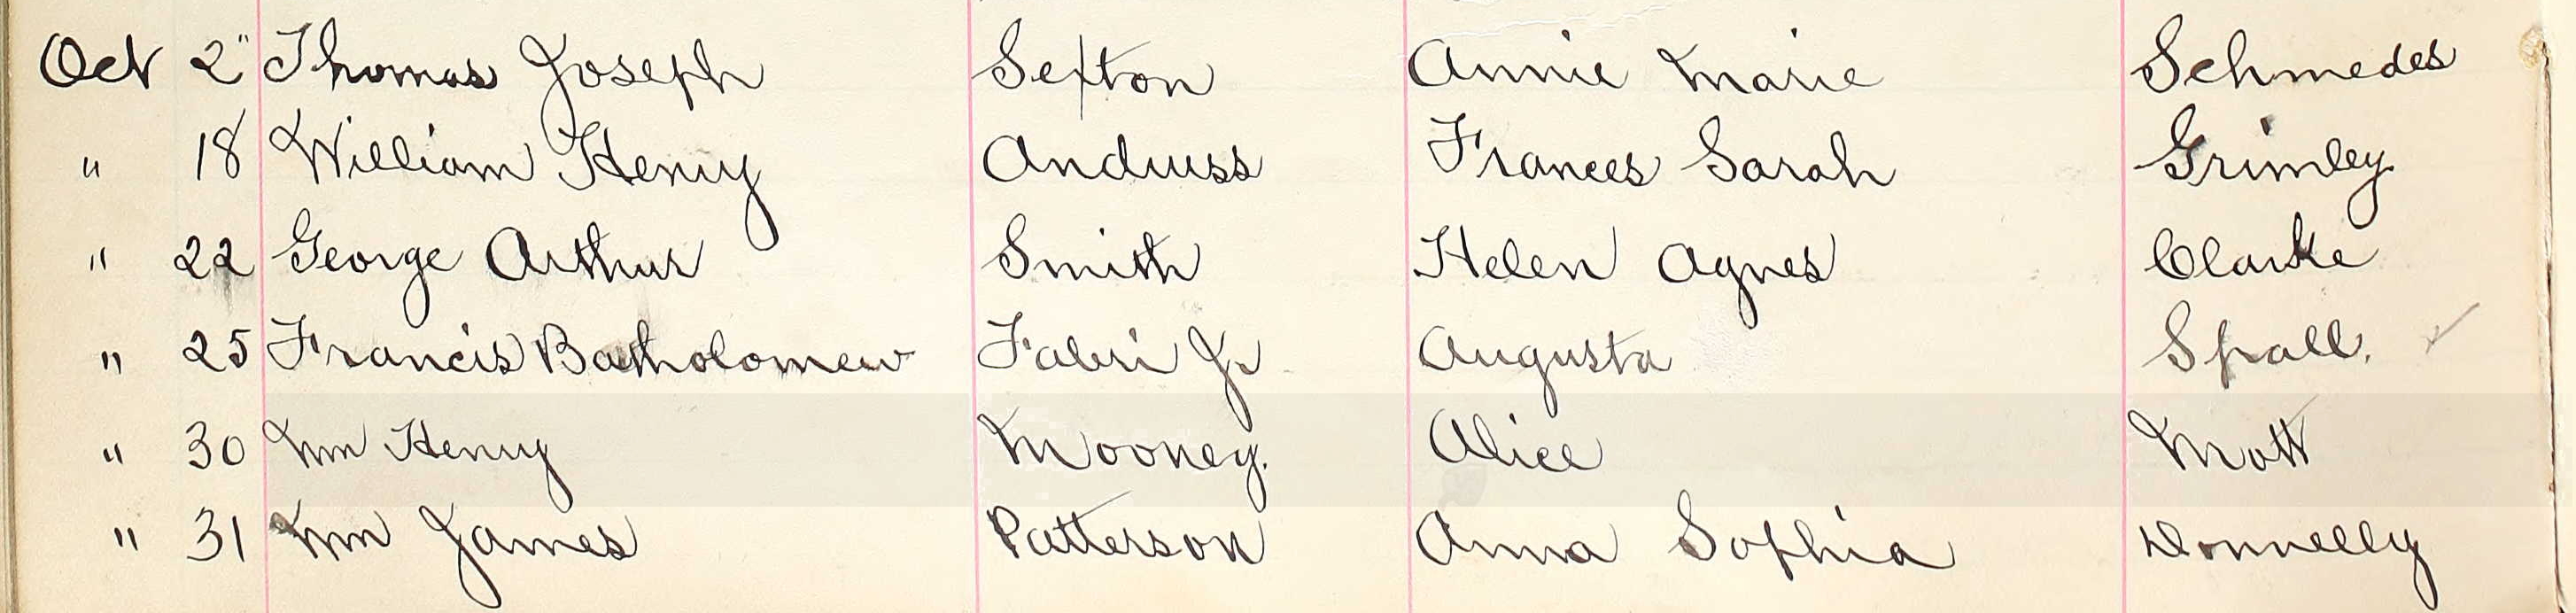 Oct 2" Thomas Joseph Sexton Annie Marie Schmedes
" 18 William Henry Andruss Frances Sarah Grimley
" 22 George Arthur Smith Helen Agnes Clarke
" 25 Francis Bartholomew Fabri Jr Augusta Spall.
" 30 Wm Henry Mooney. Alice Mott
" 31 Wm James Patterson Anna Sophia Donnelly